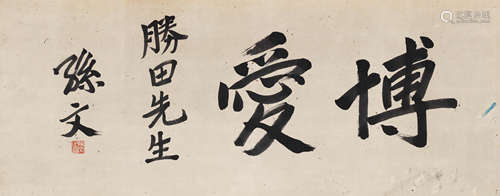 博愛
勝田先生
孫文